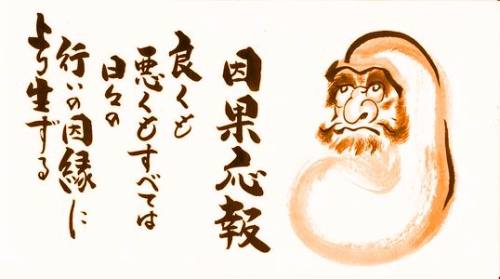 因果応報
良くも
悪くもすべては
日々の
行いの因縁に
より生ずる